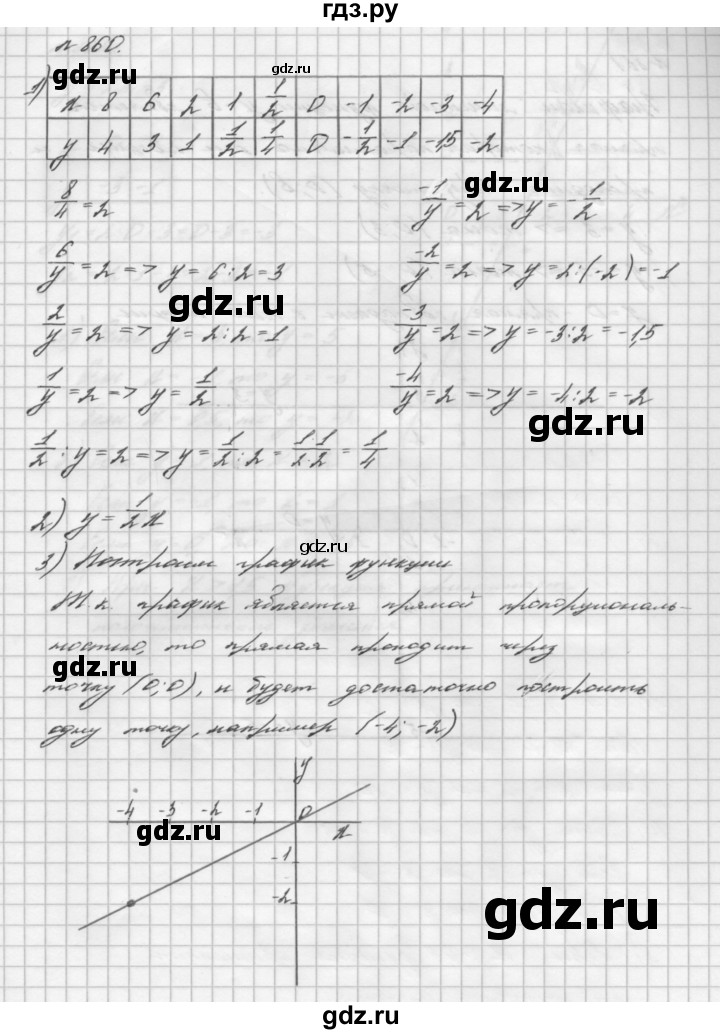 гдз.ру
№ 860.
gdz.ru
gdz.ru
1)
x 8 6 2 1 1/2 0 -1 -2 -3 -4
y 4 3 1 1/2 1/4 0 -1/2 -1 -1,5 -2
gdz.ru
8/4 = 2
-1/y = 2 => y = -1/2
6/y = 2 => y = 6:2 = 3
-2/y = 2 => y = 2:(-2) = -1
gdz.ru
2/y = 2 => y = 2:2 = 1
-3/y = 2 => y = -3:2 = -1,5
1/y = 2 => y = 1/2
-4/y = 2 => y = -4:2 = -2
gdz.ru
1/2 : y = 2 => y = 1/2 : 2 = 1·1/2·2 = 1/4
2) y = 1/2 x
gdz.ru
3) Построим график функции
Т.к. график является прямой пропорциональ-
ностью, то прямая проходит через
gdz.ru
точку (0;0), и будет достаточно построить
одну точку, например (-4; -2)
y
-4 -3 -2 -1 0
gdz.ru
x
-1
-2
gdz.ru